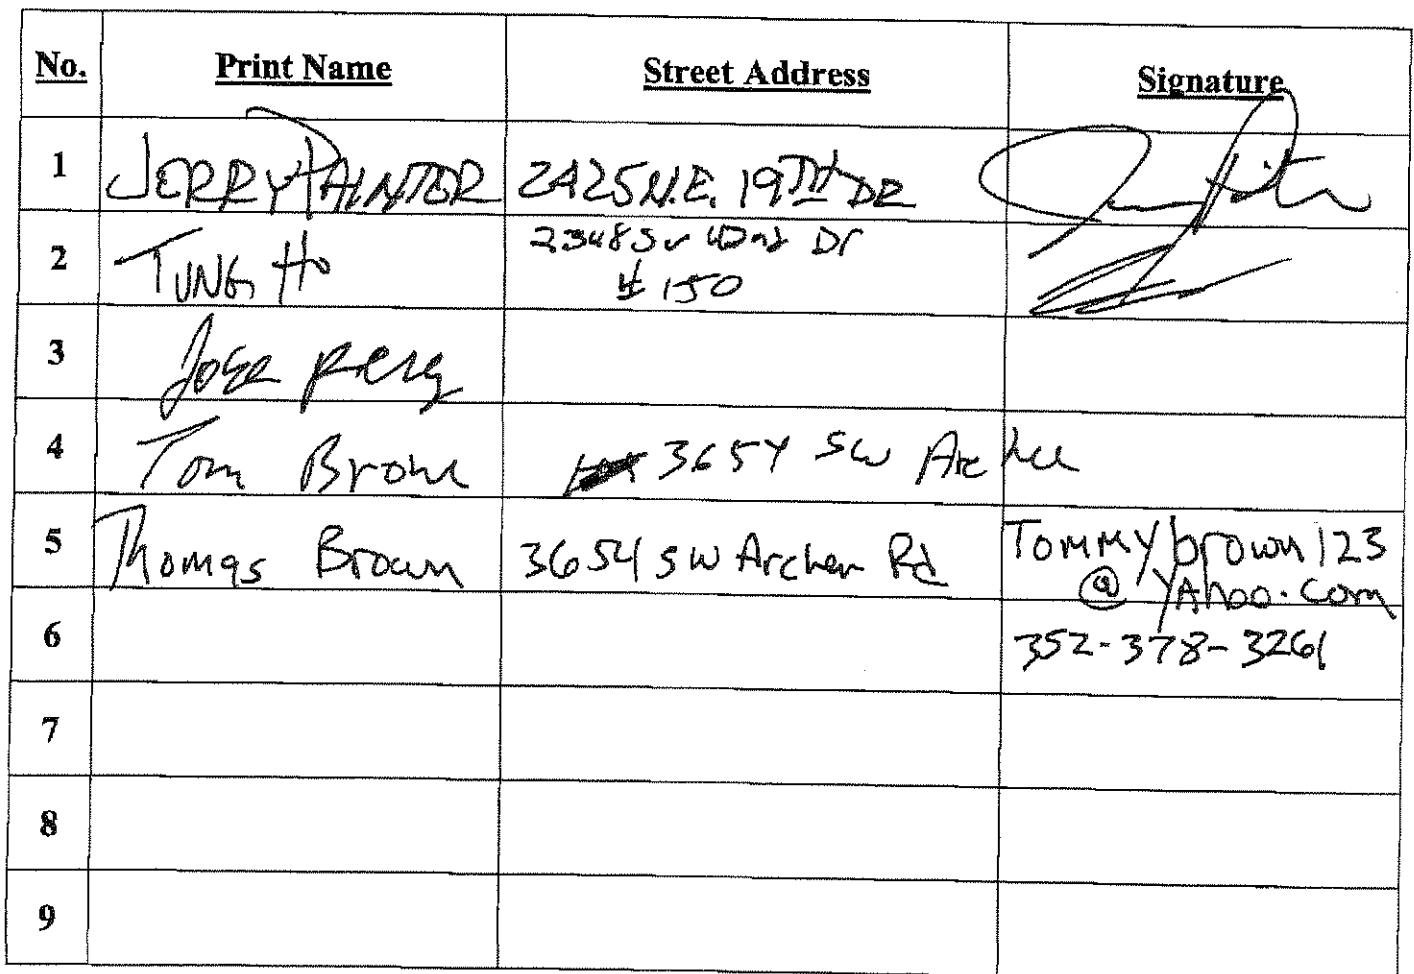 No. Print Name Street Address Signature
1 JERRY PAINTOR 2425 N.E. 19TH DR
2 TUNG HO 2348 SW Dr
# 150
3 Jose
4 Tom Brown 3654 SW Archer
5 Thomas Brown 3654 SW Archer Rd Tommybrown123
@ YAhoo.com
6 352-378-3261
7
8
9